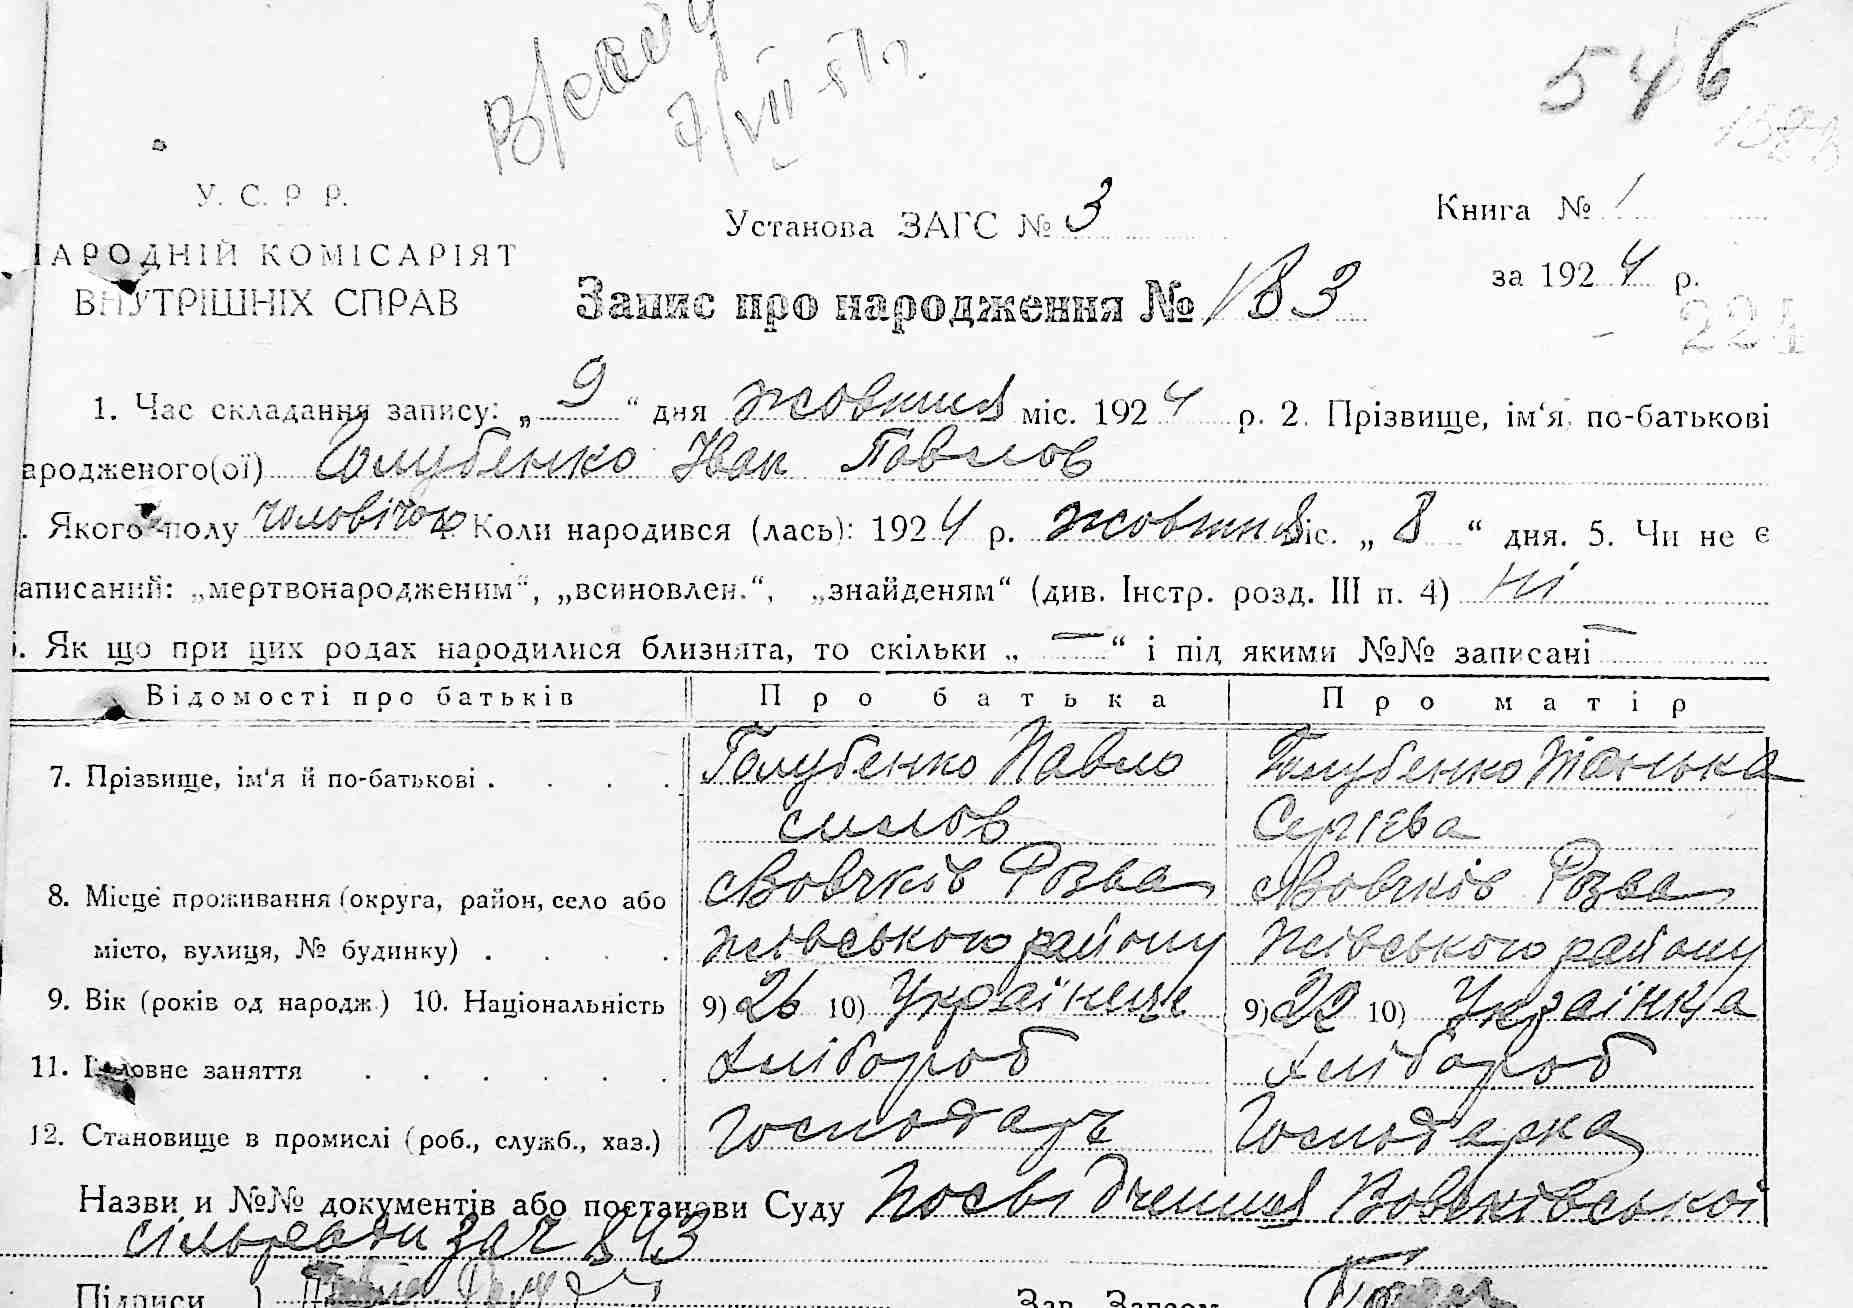 7/VII 51 г.
546
У. С. Р Р.
АРОДНІЙ КОМІСАРІЯТ
ВНУТРІШНІХ СПРАВ
Установа ЗАГС № 3
Книга № 1
за 1924 р.
Запис про народження № 183
224
1. Час складання запису: „ 9 “ дня жовтня міс. 1924 р. 2. Прізвище, ім‘я по-батькові
ародженого(ої) Голубенко Іван Павлов
. Якого полу чоловічого 4. Коли народився (лась): 1924 р. жовтня міс. „ 8 “ дня. 5. Чи не є
аписаний: „мертвонародженим“, „всиновлен.“, „знайденям“ (див. Інстр. розд. III п. 4) Ні
. Як що при цих родах народилися близнята, то скільки „ — “ і під якими №№ записані —
Відомості про батьків Про батька Про матір
7. Прізвище, ім‘я й по-батькові . . . . Голубенко Павло Голубенко Танька
силов Сергієва
8. Місце проживання (округа, район, село або Вовчків Розва Вовчків Розва
місто, вулиця, № будинку) . . . . жівського району жівського району
9. Вік (років од народж.) 10. Національність 9) 26 10) Українець 9) 22 10) Українка
11. Головне заняття . . . . . . Хлібороб Хлібороб
12. Становище в промислі (роб., служб., хаз.) Господарь Господарка
Назви и №№ документів або постанови Суду Посвідчення Вовчківської
сільради за ч 843
Підписи )
Зав. Загсом